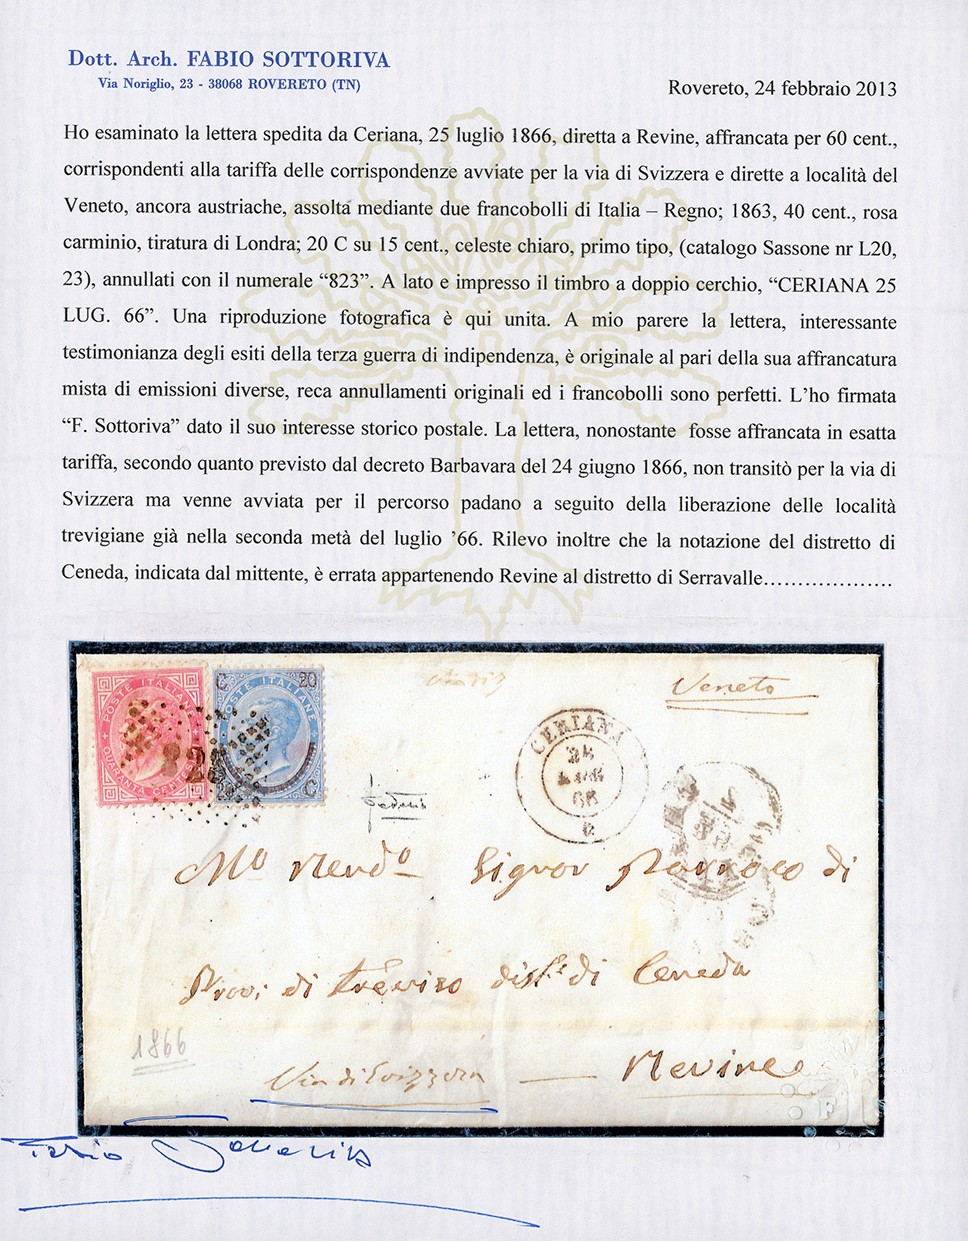 Dott. Arch. FABIO SOTTORIVA
Via Noriglio, 23 - 38068 ROVERETO (TN)
Rovereto, 24 febbraio 2013
Ho esaminato la lettera spedita da Ceriana, 25 luglio 1866, diretta a Revine, affrancata per 60 cent.,
corrispondenti alla tariffa delle corrispondenze avviate per la via di Svizzera e dirette a località del
Veneto, ancora austriache, assolta mediante due francobolli di Italia – Regno; 1863, 40 cent., rosa
carminio, tiratura di Londra; 20 C su 15 cent., celeste chiaro, primo tipo, (catalogo Sassone nr L20,
23), annullati con il numerale “823”. A lato e impresso il timbro a doppio cerchio, “CERIANA 25
LUG. 66”. Una riproduzione fotografica è qui unita. A mio parere la lettera, interessante
testimonianza degli esiti della terza guerra di indipendenza, è originale al pari della sua affrancatura
mista di emissioni diverse, reca annullamenti originali ed i francobolli sono perfetti. L’ho firmata
“F. Sottoriva” dato il suo interesse storico postale. La lettera, nonostante fosse affrancata in esatta
tariffa, secondo quanto previsto dal decreto Barbavara del 24 giugno 1866, non transitò per la via di
Svizzera ma venne avviata per il percorso padano a seguito della liberazione delle località
trevigiane già nella seconda metà del luglio ’66. Rilevo inoltre che la notazione del distretto di
Ceneda, indicata dal mittente, è errata appartenendo Revine al distretto di Serravalle………………
POSTE ITALIANE
QUARANTA CENTESIMI
C 20
POSTE ITALIANE
C
823
Veneto
CERIANA
25
LUG
66
Mo Rendo Signor Parroco di
Provi di Treviso dist. di Ceneda
1866
Via di Svizzera — Revine
Fabio Sottoriva